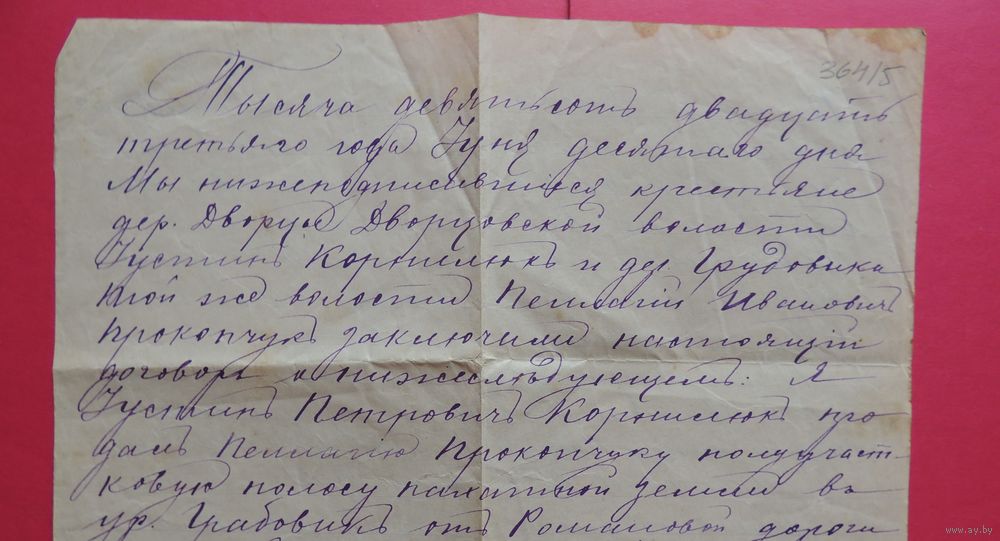 364/5
Тысяча девятьсотъ двадцать
третьяго года Іуня десятаго дня
Мы нижеподписавшіеся крестьяне
дер. Дворцы Дворцовской волости
Іустинъ Корнилюкъ и дер. Грудовика
той же волости Пеллагій Ивановичъ
Прокопчукъ заключили настоящій
договоръ о нижеслѣдующемъ: Я
Іустинъ Петровичъ Корнилюкъ про
далъ Пеллагію Прокопчуку полуучаст-
ковую полосу пахатной земли въ
ур. Грабовикъ отъ Романовой дороги
www.ay.by